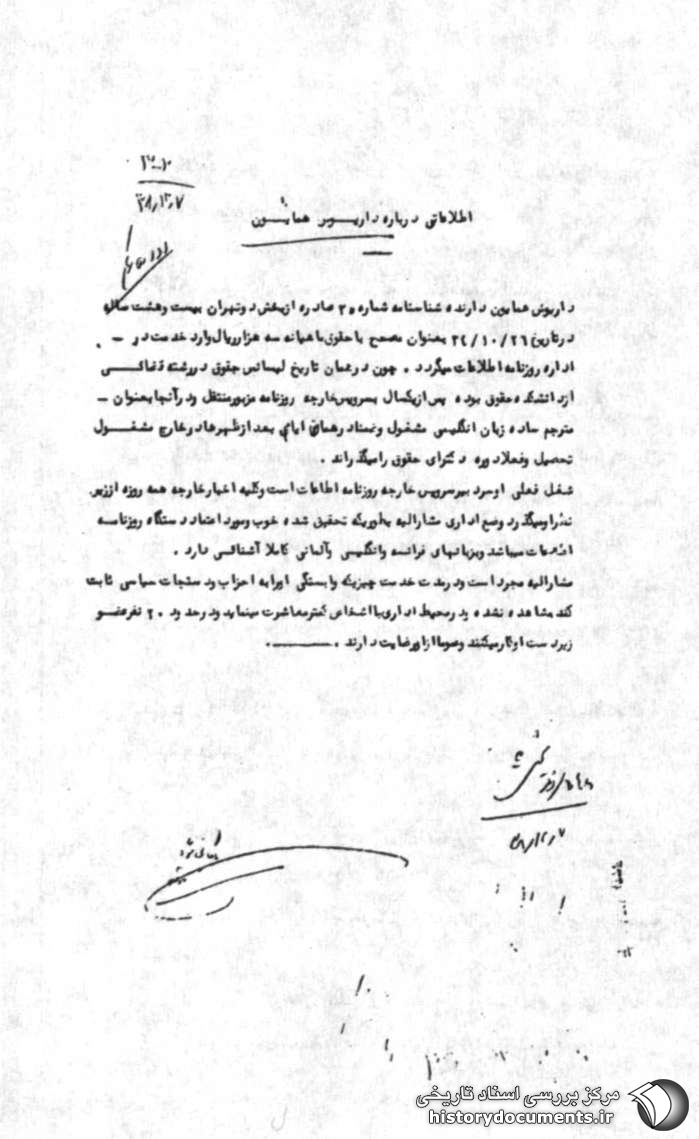 اطلاعاتی درباره داریوش همایون
داریوش همایون دارنده شناسنامه شماره ۳۰ صادره ازبخش دوتهران بیست وهشت ساله
درتاریخ ۲۶/۱۰/۲۴ بعنوان مصحح باحقوق ماهیانه سه هزارریال وارد خدمت در –
اداره روزنامه اطلاعات میگردد . چون درهمان تاریخ لیسانس حقوق دررشته قضائی
ازدانشکده حقوق بوده پس ازیکسال بسرویس خارجه روزنامه مزبورمنتقل ودرآنجابعنوان –
مترجم ساده زبان انگلیسی مشغول وضمنا درهمان ایام بعد ازظهرهادرخارج مشغول
تحصیل وفعلادوره دکترای حقوق رامیگذراند .
شغل فعلی اوسردبیرسرویس خارجه روزنامه اطلاعات است وکلیه اخبارخارجه همه روزه اززیر
نظراومیگذرد وضع اداری مشارالیه بطوریکه تحقیق شده خوب ومورد اعتماد دستگاه روزنامه
اطلاعات میباشد وبزبانهای فرانسه وانگلیسی وآلمانی کاملا آشنائی دارد .
مشارالیه مجرد است ودرمدت خدمت چیزیکه وابستگی اورابه احزاب ودستجات سیاسی ثابت
کند مشاهده نشده ودرمحیط اداری بااشخاص کمترمعاشرت مینماید ودرحدود ۲۰ نفرعضو
زیردست اوکارمیکنند وعموماازاورضایت دارند .
مرکز بررسی اسناد تاریخی
historydocuments.ir